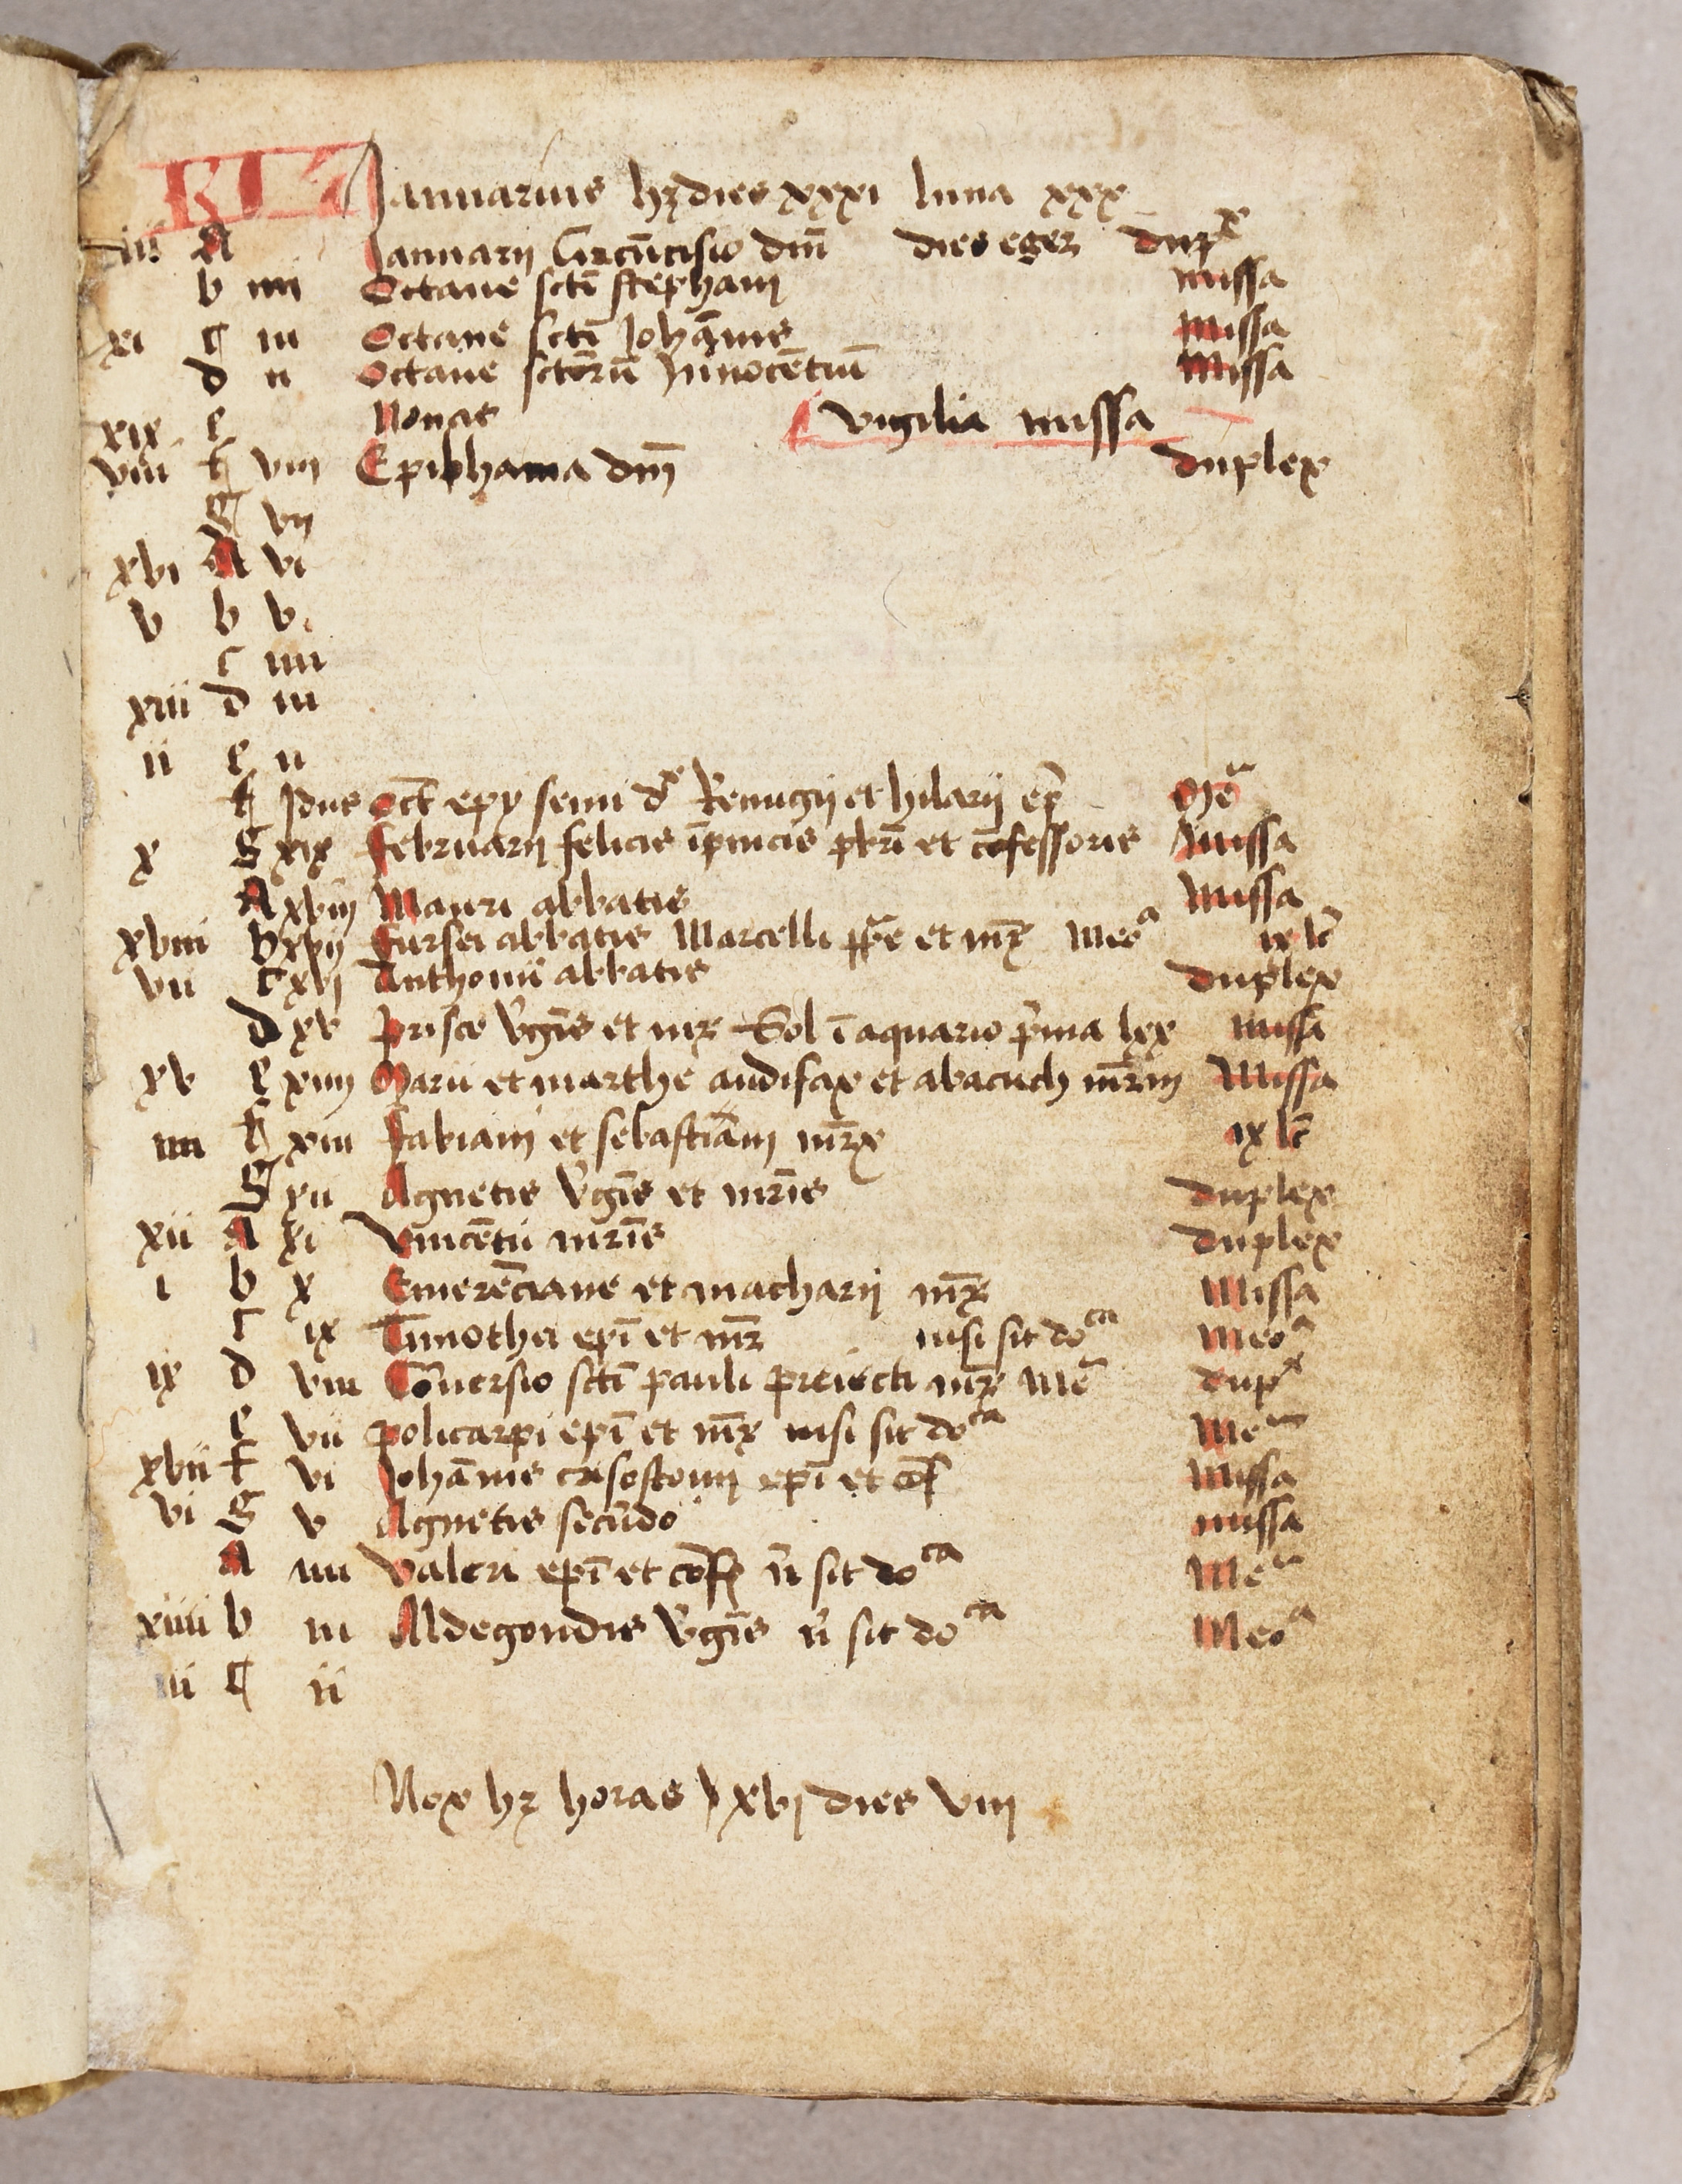 KL Januarius hꝫ dies xxxi luna xxx
iii A Januarii Circūcisio dnī dies eger dupˣ
b iiii Octaue sctī stephani missa
xi c iii Octaue sctī Johānnis Missa
d ii Octaue sctōrū Innocētiū Missa
xix e Nonas vigilia missa
viii f viii Epiphania dnī duplex
g vii
xvi A vi
v b v
c iiii
xiii d iii
ii e ii
f Idus Oct̄ epy semi dˣ Remigii et hilarii ep̄
x g xix februarii felicis ī pincis pbrī et cōfessoris Missa
A xviii Mauri abbatis Missa
xviii b xvii Fursei abbatis Marcelli ppē et mr̄ Meoᵃ ix lc̄
vii c xvi Anthonii abbatis duplex
d xv Prisce v̄gīs et mr Sol ī aquario p̄ma lxx missa
xv e xiiii Marii et marthe audifax et abacuch mr̄m Missa
iiii f xiii Fabiani et sebastiani mr̄x ix lc̄
g xii Agnetis v̄gīs et mrīs duplex
xii A xi Vincētii mrīs duplex
i b x Emerēciane et macharii mr̄ Missa
c ix Timothei epī et mr̄ nisi sit doᶜᵃ Meoᵃ
ix d viii Cōuersio sctī pauli preiecti mr̄ Mē dupˣ
e vii policarpi epī et mr̄ nisi sit doᶜᵃ Meᵃ
xvii f vi Johānnis crisostomi epī et cōf Missa
vi g v Agnetis secūdo missa
A iiii Valeri epī et cōf n̄ sit doᶜᵃ Meᵃ
xiiii b iii Aldegondis v̄gīs n̄ sit doᶜᵃ Meoᵃ
iii c ii
Nox hꝫ horas xvi dies viii